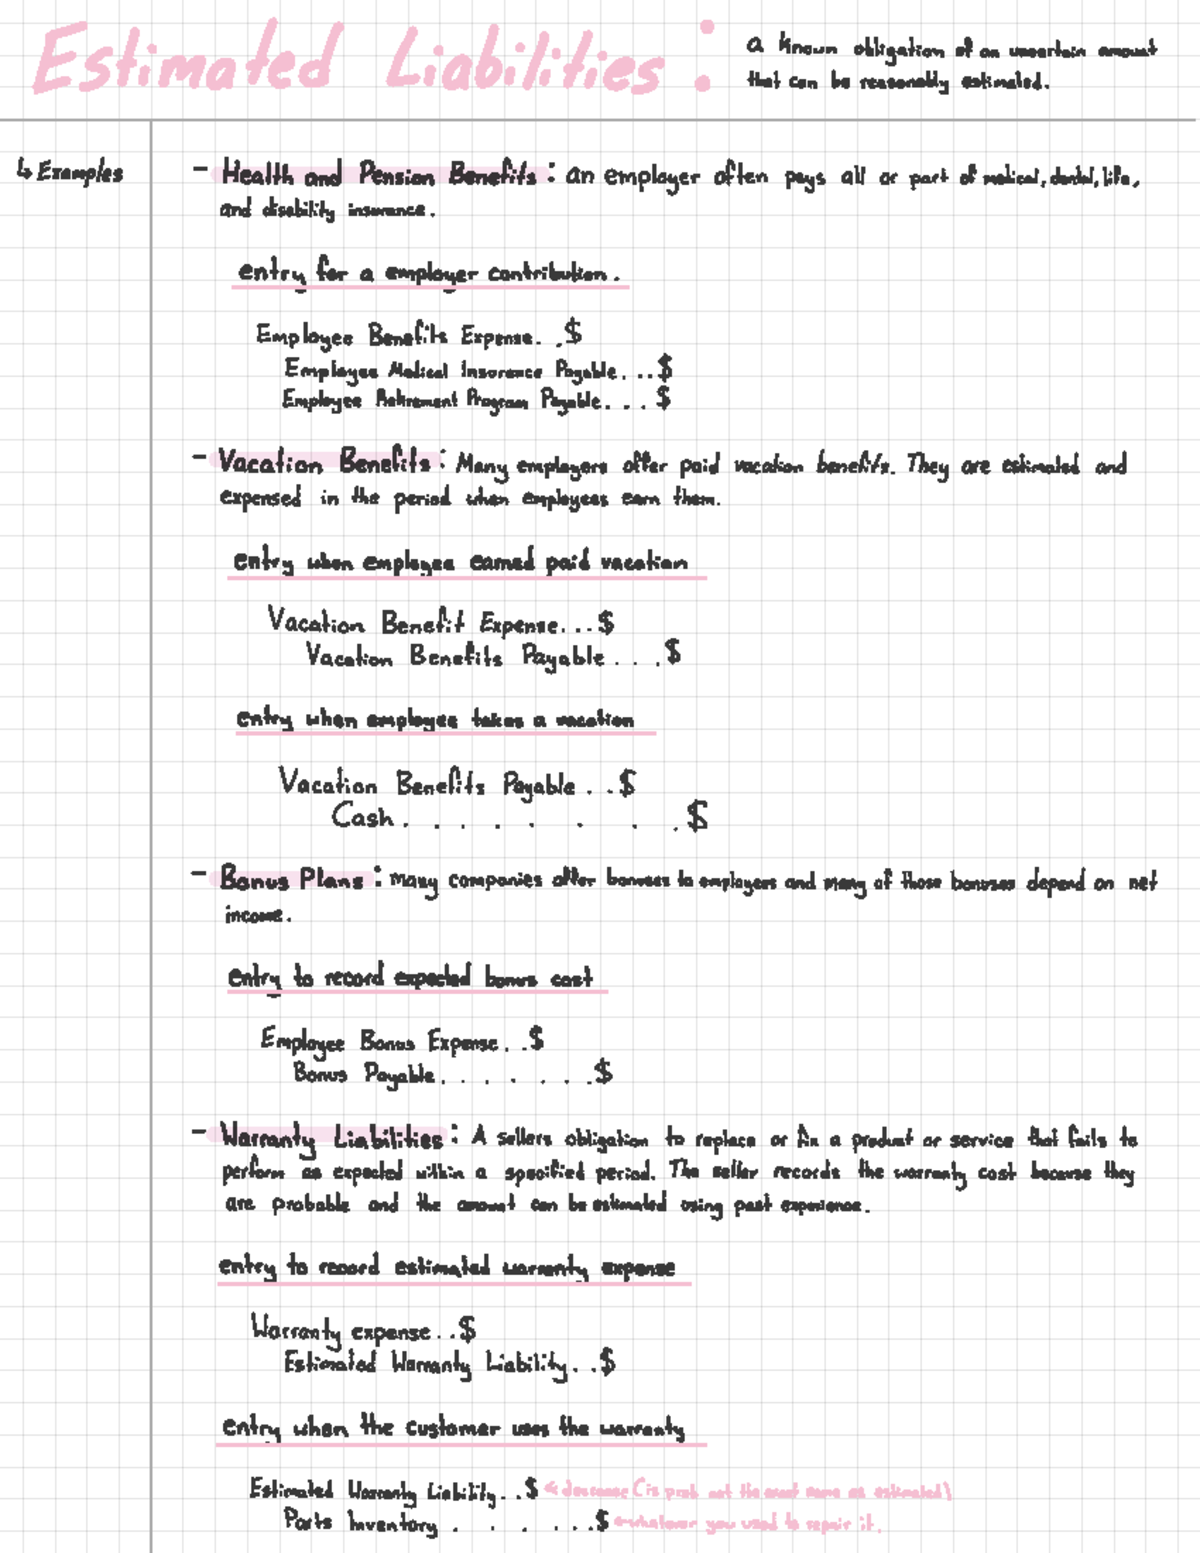 Estimated Liabilities:
a known obligation of an uncertain amount
that can be reasonably estimated.
↳ Examples
- Health and Pension Benefits: an employer often pays all or part of medical, dental, life,
and disability insurance.
entry for a employer contribution.
Employee Benefits Expense. .$
Employee Medical Insurance Payable. ..$
Employee Retirement Program Payable. . . $
- Vacation Benefits: Many employers offer paid vacation benefits. They are estimated and
expensed in the period when employees earn them.
entry when employee earned paid vacation
Vacation Benefit Expense. ..$
Vacation Benefits Payable . . .$
entry when employee takes a vacation
Vacation Benefits Payable . .$
Cash . . . . . . .$
- Bonus Plans: Many companies offer bonuses to employers and many of those bonuses depend on net
income.
entry to record expected bonus cost
Employee Bonus Expense. .$
Bonus Payable. . . . . .$
- Warranty Liabilities: A sellers obligation to replace or fix a product or service that fails to
perform as expected within a specified period. The seller records the warranty cost because they
are probable and the amount can be estimated using past experience.
entry to record estimated warranty expense
Warranty expense. .$
Estimated Warranty Liability. .$
entry when the customer uses the warranty
Estimated Warranty Liability. .$ ← decrease (is prob not the exact same as estimated)
Parts Inventory . . . . ..$ ← whatever you used to repair it.